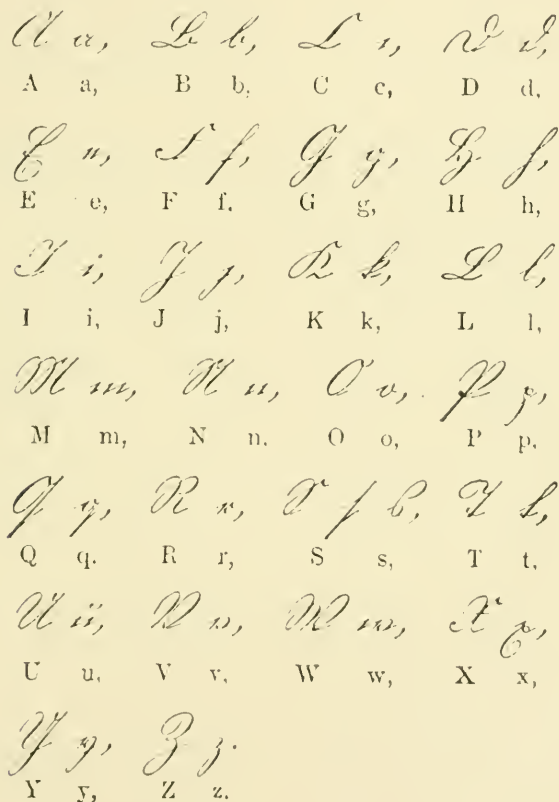 A a, B b, C c, D d,
A a, B b, C c, D d,
E e, F f, G g, H h,
E e, F f. G g, H h,
I i, J j, K k, L l,
I i, J j, K k, L l,
M m, N n, O o, P p,
M m, N n. O o, P p.
Q q, R r, S ſ s, T t,
Q q. R r, S s, T t,
U ü, V v, W w, X x,
U u, V v, W w, X x,
Y y, Z z.
Y y, Z z.